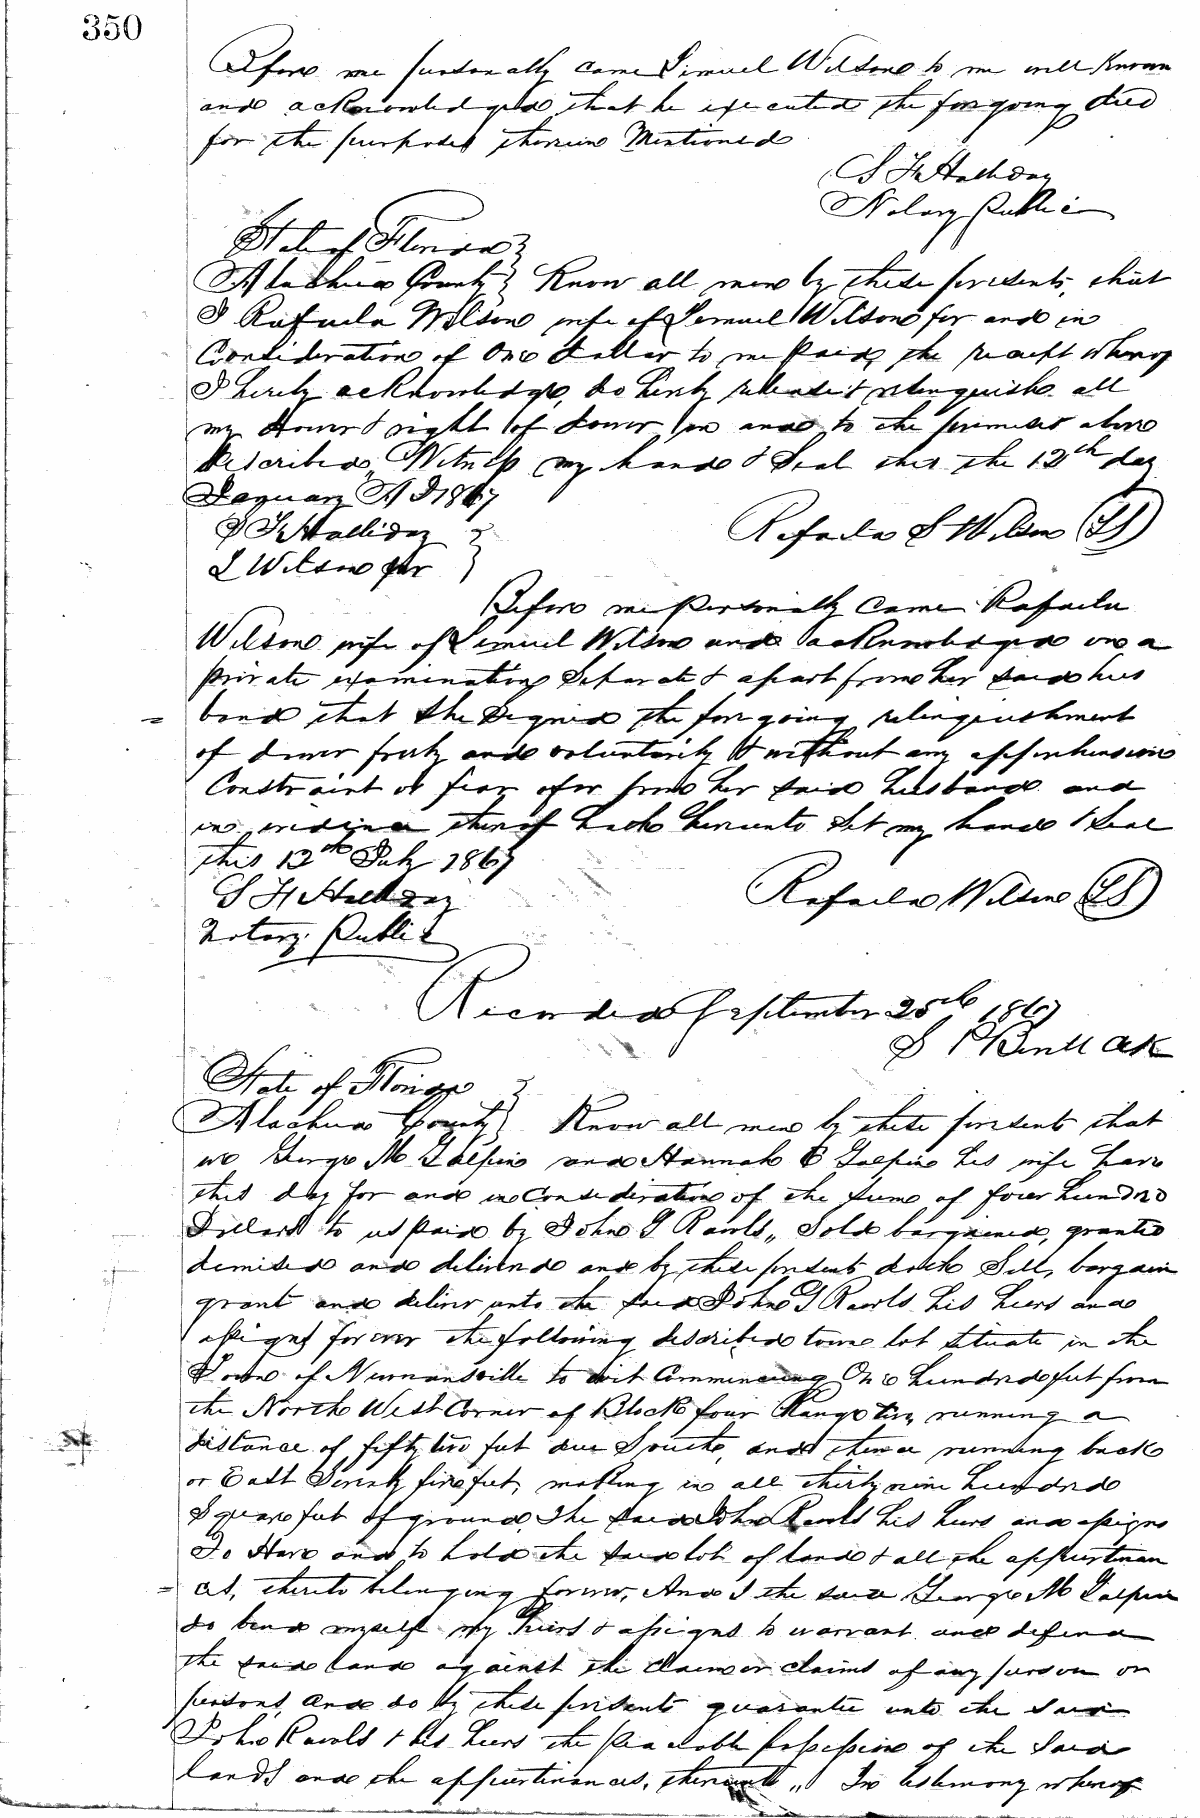 350
Before me personally came Lemuel Wilson to me well known
and acknowledged that he executed the foregoing deed
for the purposes therein Mentioned
S F Halliday
Notary Public
State of Florida }
Alachua County } Know all men by these presents, that
I Rafaela Wilson wife of Lemuel Wilson for and in
Consideration of One dollar to me Paid, the receipt whereof
I hereby acknowledge, do hereby release & relinquish all
my dower & right of dower in and to the premises above
described, Witness my hand & Seal this the 12th day
January A D 1867
S F Halliday }
L Wilson Jur }
Rafaela S Wilson (LS)
Before me Personally came Rafaela
Wilson wife of Lemuel Wilson and acknowledged on a
Private examination Seperate & apart from her said hus
= band that She Signed the foregoing relinquishment
of dower freely and voluntarily & without any apprehension
Constraint or fear of or from her said husband and
in evidence thereof hath hereunto Set my hand & Seal
this 12th July 1867
S F Halliday
Notary Public
Rafaela Wilson (LS)
Recorded September 25th 1867
State of Florida }
Alachua County } Know all men by these presents that
we George M Galpin and Hannah E Galpin his wife have
this day for and in Consideration of the sum of four hundred
Dollars to us paid by John G Rawls,, Sold bargained, granted
demised and delivered and by these presents doth Sell, bargain
grant and deliver unto the said John G Rawls his heirs and
assigns forever the following described town lot Situate in the
Town of Newnansville to wit Commencing One hundred feet from
the North West Corner of Block four Range two running a
distance of fifty two feet due South, and thence running back
or East Seventy five feet, making in all thirty nine hundred
Square feet of ground, The said John Rawls his heirs and assigns
To Have and to hold the said lot of land & all the appurtenan
= ces, thereto belonging forever, And I the said George M Galpin
do bind myself my heirs & assigns to warrant and defend
the said land against the Claim or claims of any person or
persons, and do by these presents guarantee unto the said
John Rawls & his heirs the peaceable possession of the said
lands and the appurtenances, thereunto,, In testimony whereof